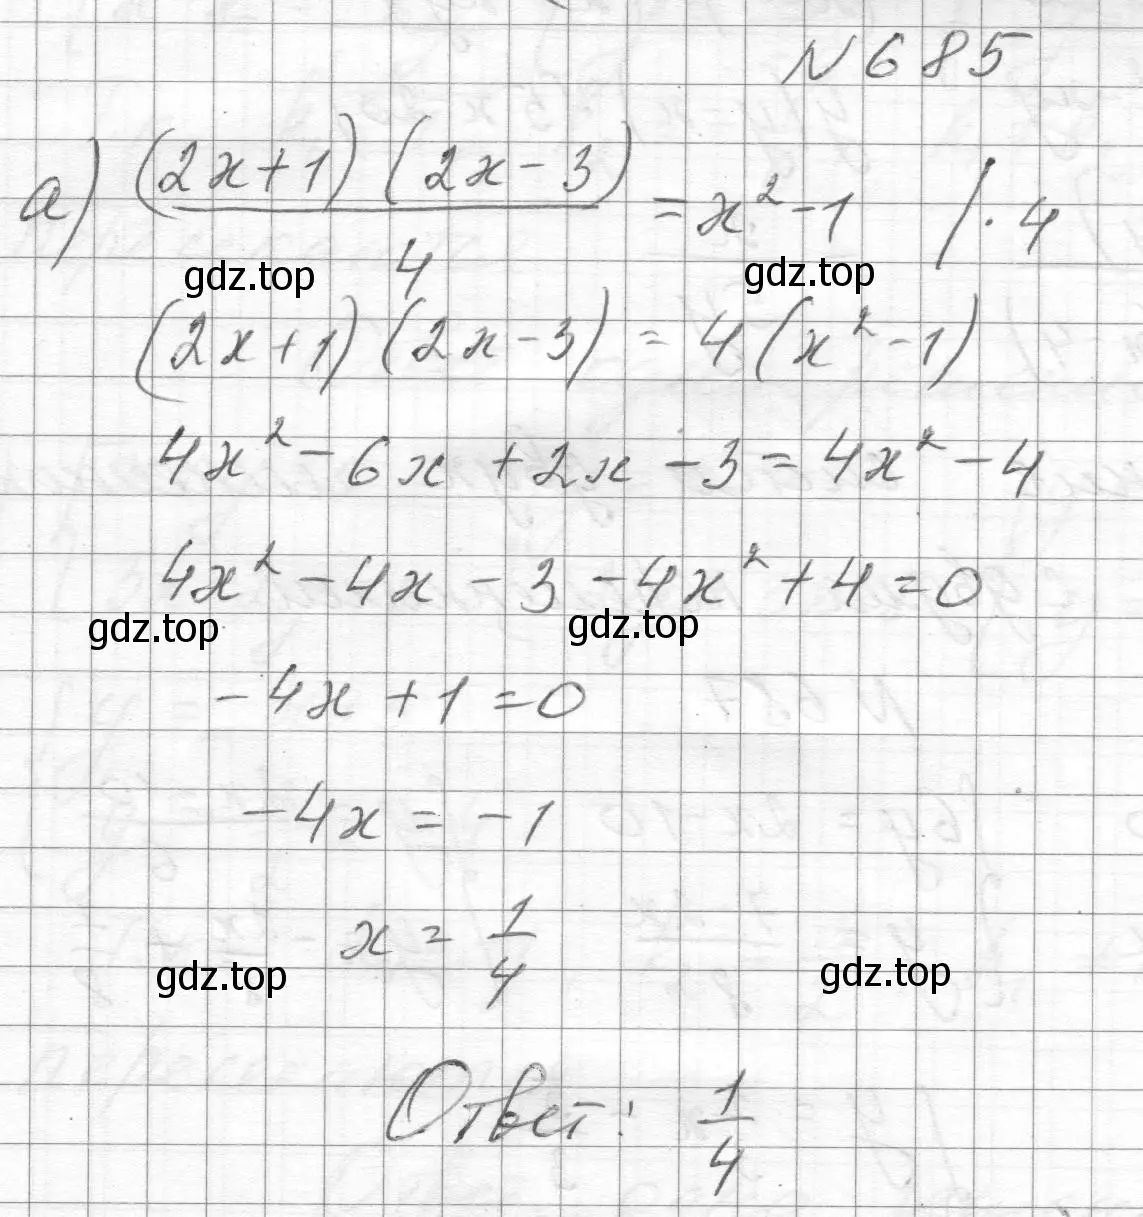 N 685
а) (2x+1)(2x-3)/4 = x²-1 /·4
gdz.top gdz.top
(2x+1)(2x-3) = 4(x²-1)
4x²-6x+2x-3=4x²-4
4x²-4x-3-4x²+4=0
gdz.top gdz.top
-4x+1=0
-4x=-1
x=1/4
gdz.top gdz.top
Ответ: 1/4